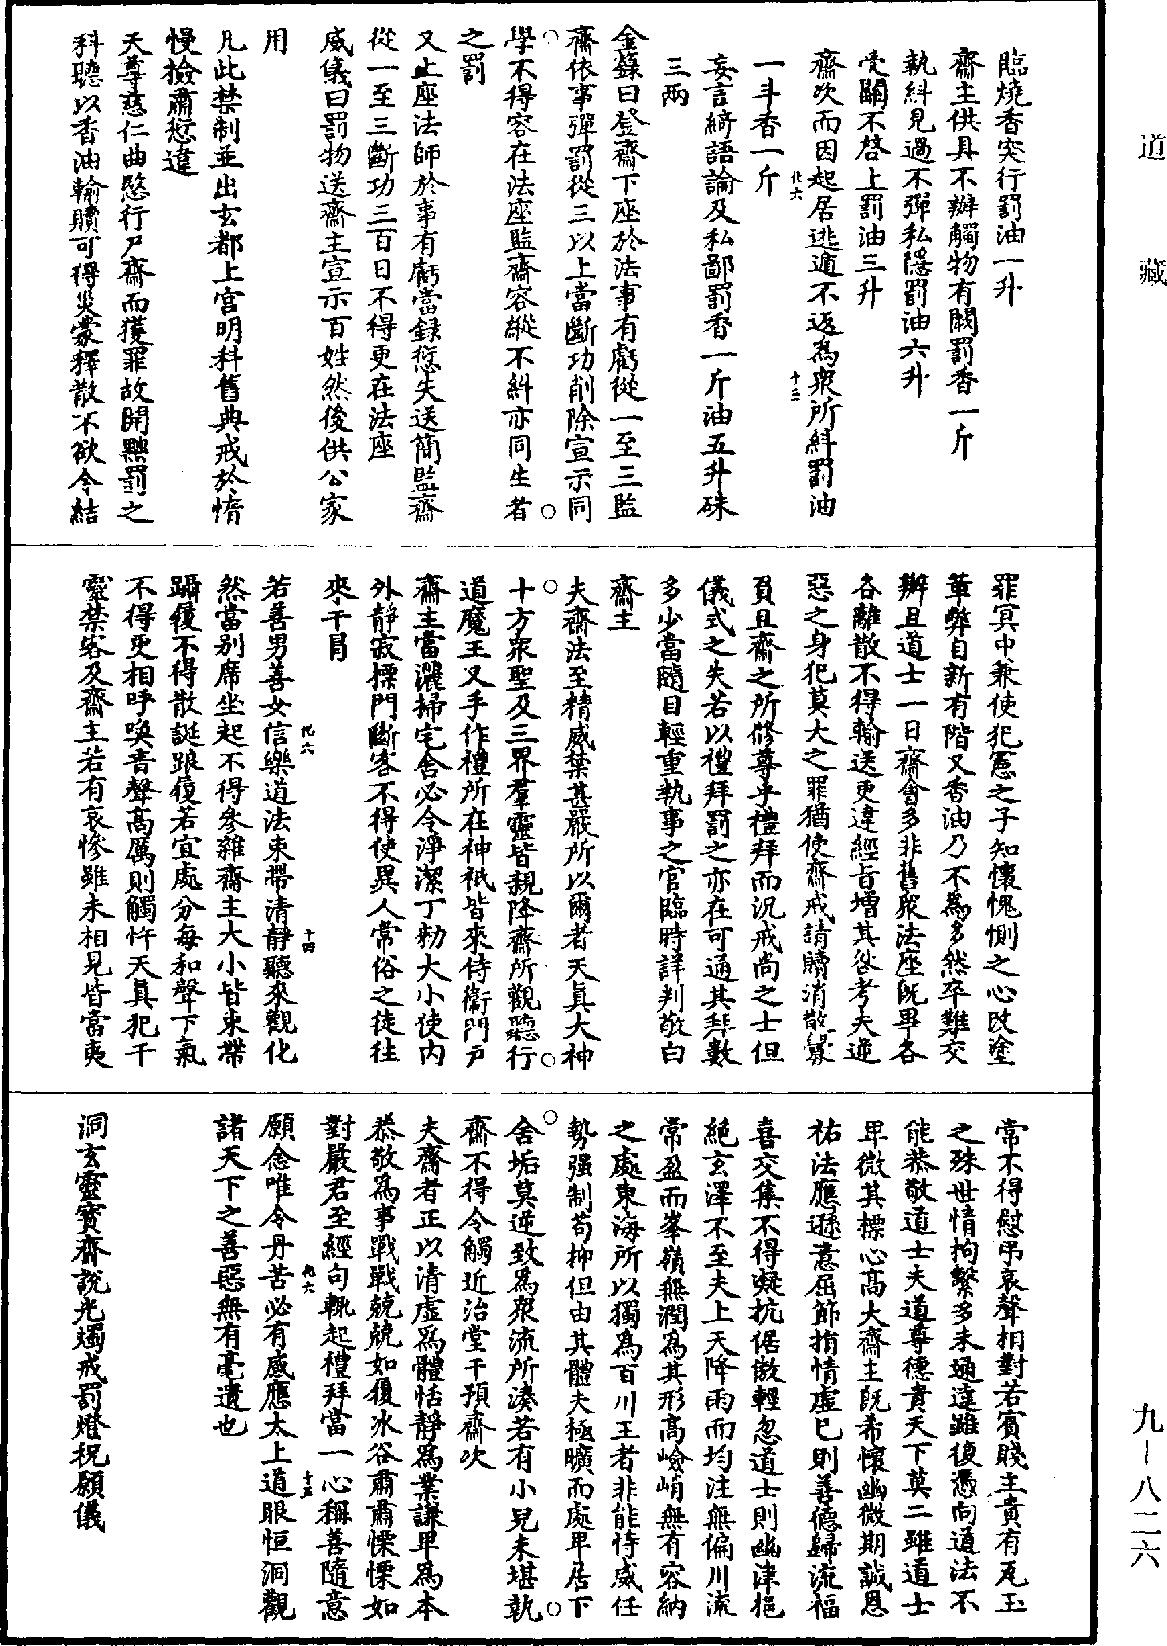 道藏
臨燒香突行罰油一升
齋主供具不辦觸物有闕罰香一斤
執糾見過不彈私隱罰油六升
受關不啓上罰油三升
齋次而因起居逃遁不返爲衆所糾罰油
一斗香一斤
妄言綺語論及私鄙罰香一斤油五升硃
三兩
金籙曰登齋下座於法事有虧從一至三監
齋依事彈罰從三以上當斷功削除宣示同
學不得容在法座監齋容縱不糾亦同生者
之罰
又上座法師於事有虧當録愆失送簡監齋
從一至三斷功三百日不得更在法座
威儀曰罰物送齋主宣示百姓然後供公家
用
凡此禁制並出玄都上宫明科舊典戒於惰
慢撿肅愆違
天尊慈仁曲愍行尸齋而獲罪故開黜罰之
科聽以香油輸贖可得災蒙釋散不欲令結
罪冥中兼使犯憲之子知懷愧惻之心改塗
革弊自新有階又香油乃不爲多然卒難交
辦且道士一日齋會多非舊段法座既畢各
各離散不得輸送更違經旨增其咎考夫逆
惡之身犯莫大之罪猶使齋戒請贖消散釁
負且齋之所修尊乎禮拜而況戒尚之士但
儀式之失若以禮拜罰之亦在可通其拜數
多少當隨目輕重執事之官臨時詳判敬白
齋主
夫齋法至精威禁甚嚴所以爾者天真大神
十方衆聖及三界羣靈皆親降齋所觀聽行
道魔王叉手作禮所在神祇皆來侍衛門戸
齋主當灑掃宅舍必令淨潔丁勑大小使内
外靜寂摽門斷客不得使異人常俗之徒往
來干冐
若善男善女信樂道法束帶清靜聽來觀化
然當别席坐起不得參雜齋主大小皆束帶
躡履不得散誕踉傻若宜處分每和聲下氣
不得更相呼喚音聲高厲則觸忤天真犯干
靈禁客及齋主若有哀慘雖未相見皆當夷
常不得慰弔哀聲相對若賓賤主貴有瓦玉
之殊世情拘繫多未通達雖復憑向道法不
能恭敬道士夫道尊德貴天下莫二雖道士
卑微其標心高大齋主既希懷幽微期誠恩
祐法應遜意屈節捐情虚已則善德歸流福
喜交集不得凝抗倨傲輕忽道士則幽津挹
絕玄澤不至夫上天降雨而均注無偏川流
常盈而峯嶺無潤爲其形高嶮峭無有容納
之處東海所以獨爲百川王者非能恃威任
勢强制苟抑但由其體夫極曠而處卑居下
舍垢莫逆致爲衆流所湊若有小兒未堪執
齋不得令觸近治堂干預齋次
夫齋者正以清虚爲體恬靜爲業謙卑爲本
恭敬爲事戰戰兢兢如履冰谷肅肅慄慄如
對嚴君至經句輒起禮拜當一心稱善隨意
願念唯令丹苦必有感應太上道眼恒洞觀
諸天下之善惡無有毫遺也
洞玄靈寳齋說光燭戒罰燈祝願儀
九－八二六